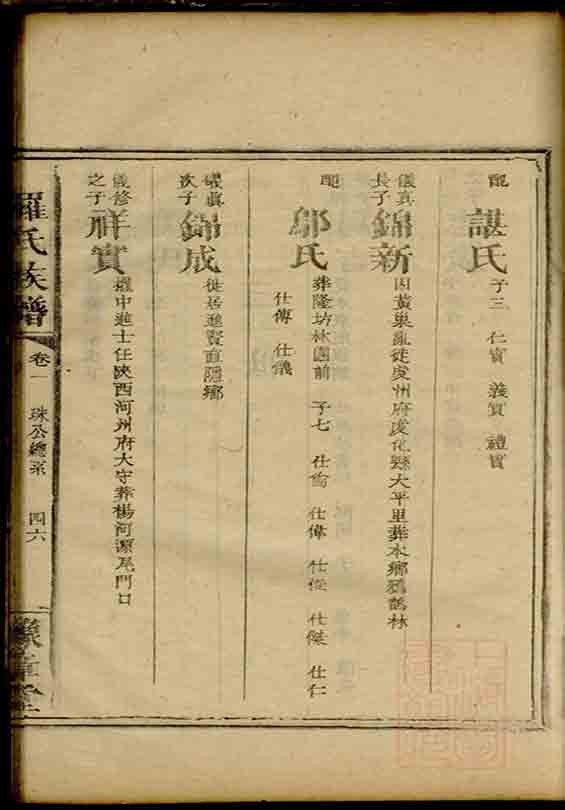 配 諶氏 子三 仁實 義實 禮實
儀真長子 錦新 因黃巢亂徙虔州府虔化縣大平里葬本鄉鴉鵲林
配 鄔氏 葬隆坊林園前 子七 仕倫 仕偉 仕從 仕傑 仕仁
仕傳 仕儀
儀真次子 錦成 徙居進賢直隱鄉
儀修之子 祥實 擢中進士任陝西河州府大守葬楊河源尾門口
羅氏族譜 卷一 珠公總系 四六 豫章堂